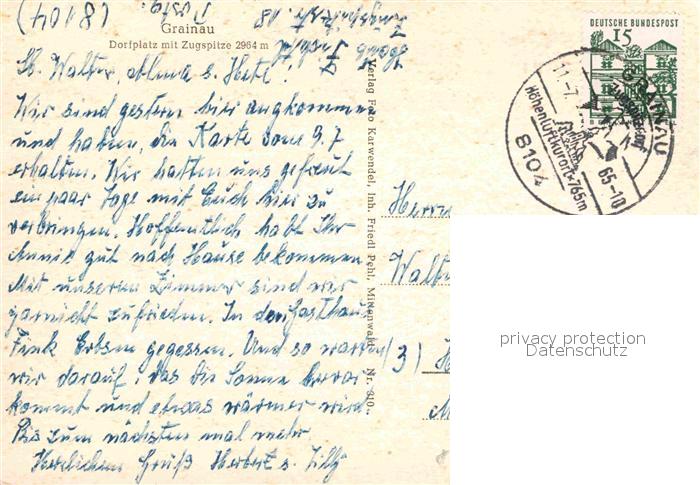 (8104)
Grainau
Dorfplatz mit Zugspitze 2964 m
Lb. Walter, Alma u. Hete!
Wir sind gestern hier angkommen
und haben die Karte vom 9.7
erhalten. Wir hatten uns gefreut
ein paar Tage mit Euch hier zu
verbringen. Hoffentlich habt Ihr
gut nach Hause bekommen
Mit unseren Zimmer sind wir
garnicht zufrieden. In den Gasthaus
Fink Erbsen gegessen. Und so warten
wir darauf, das die Sonne hervor
kommt und etwas wärmer wird
Bis zum nächsten mal mehr
Herzlichen Gruß Herbert u. Lilly
Verlag Foto Karwendel, Inh. Friedl Pehl, Mittenwald Nr. 310
Herrn
Walter
(3)
DEUTSCHE BUNDESPOST
15
GRAINAU
11.-7.
65-18
Höhenluftkurort 765m
8104
privacy protection
Datenschutz